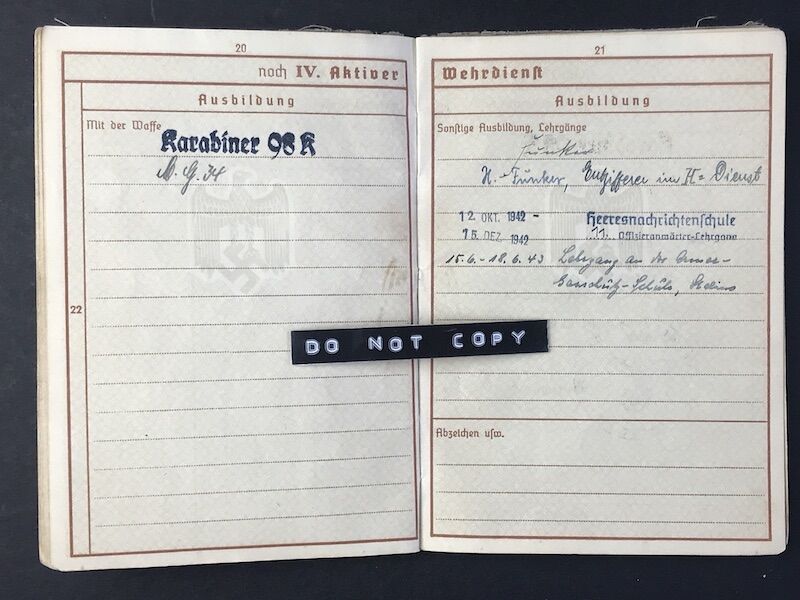 20
noch IV. Aktiver
Ausbildung
Mit der Waffe
Karabiner 98 K
M. G. 34
22
21
Wehrdienst
Ausbildung
Sonstige Ausbildung, Lehrgänge
Funker
H.-Funker, Entzifferer im H-Dienst
12. OKT. 1942 - Heeresnachrichtenschule
15. DEZ. 1942 11. Offizieranwärter-Lehrgang
15.6.-18.6.43 Lehrgang an der
Gasschutz-Schule,
Abzeichen usw.
DO NOT COPY